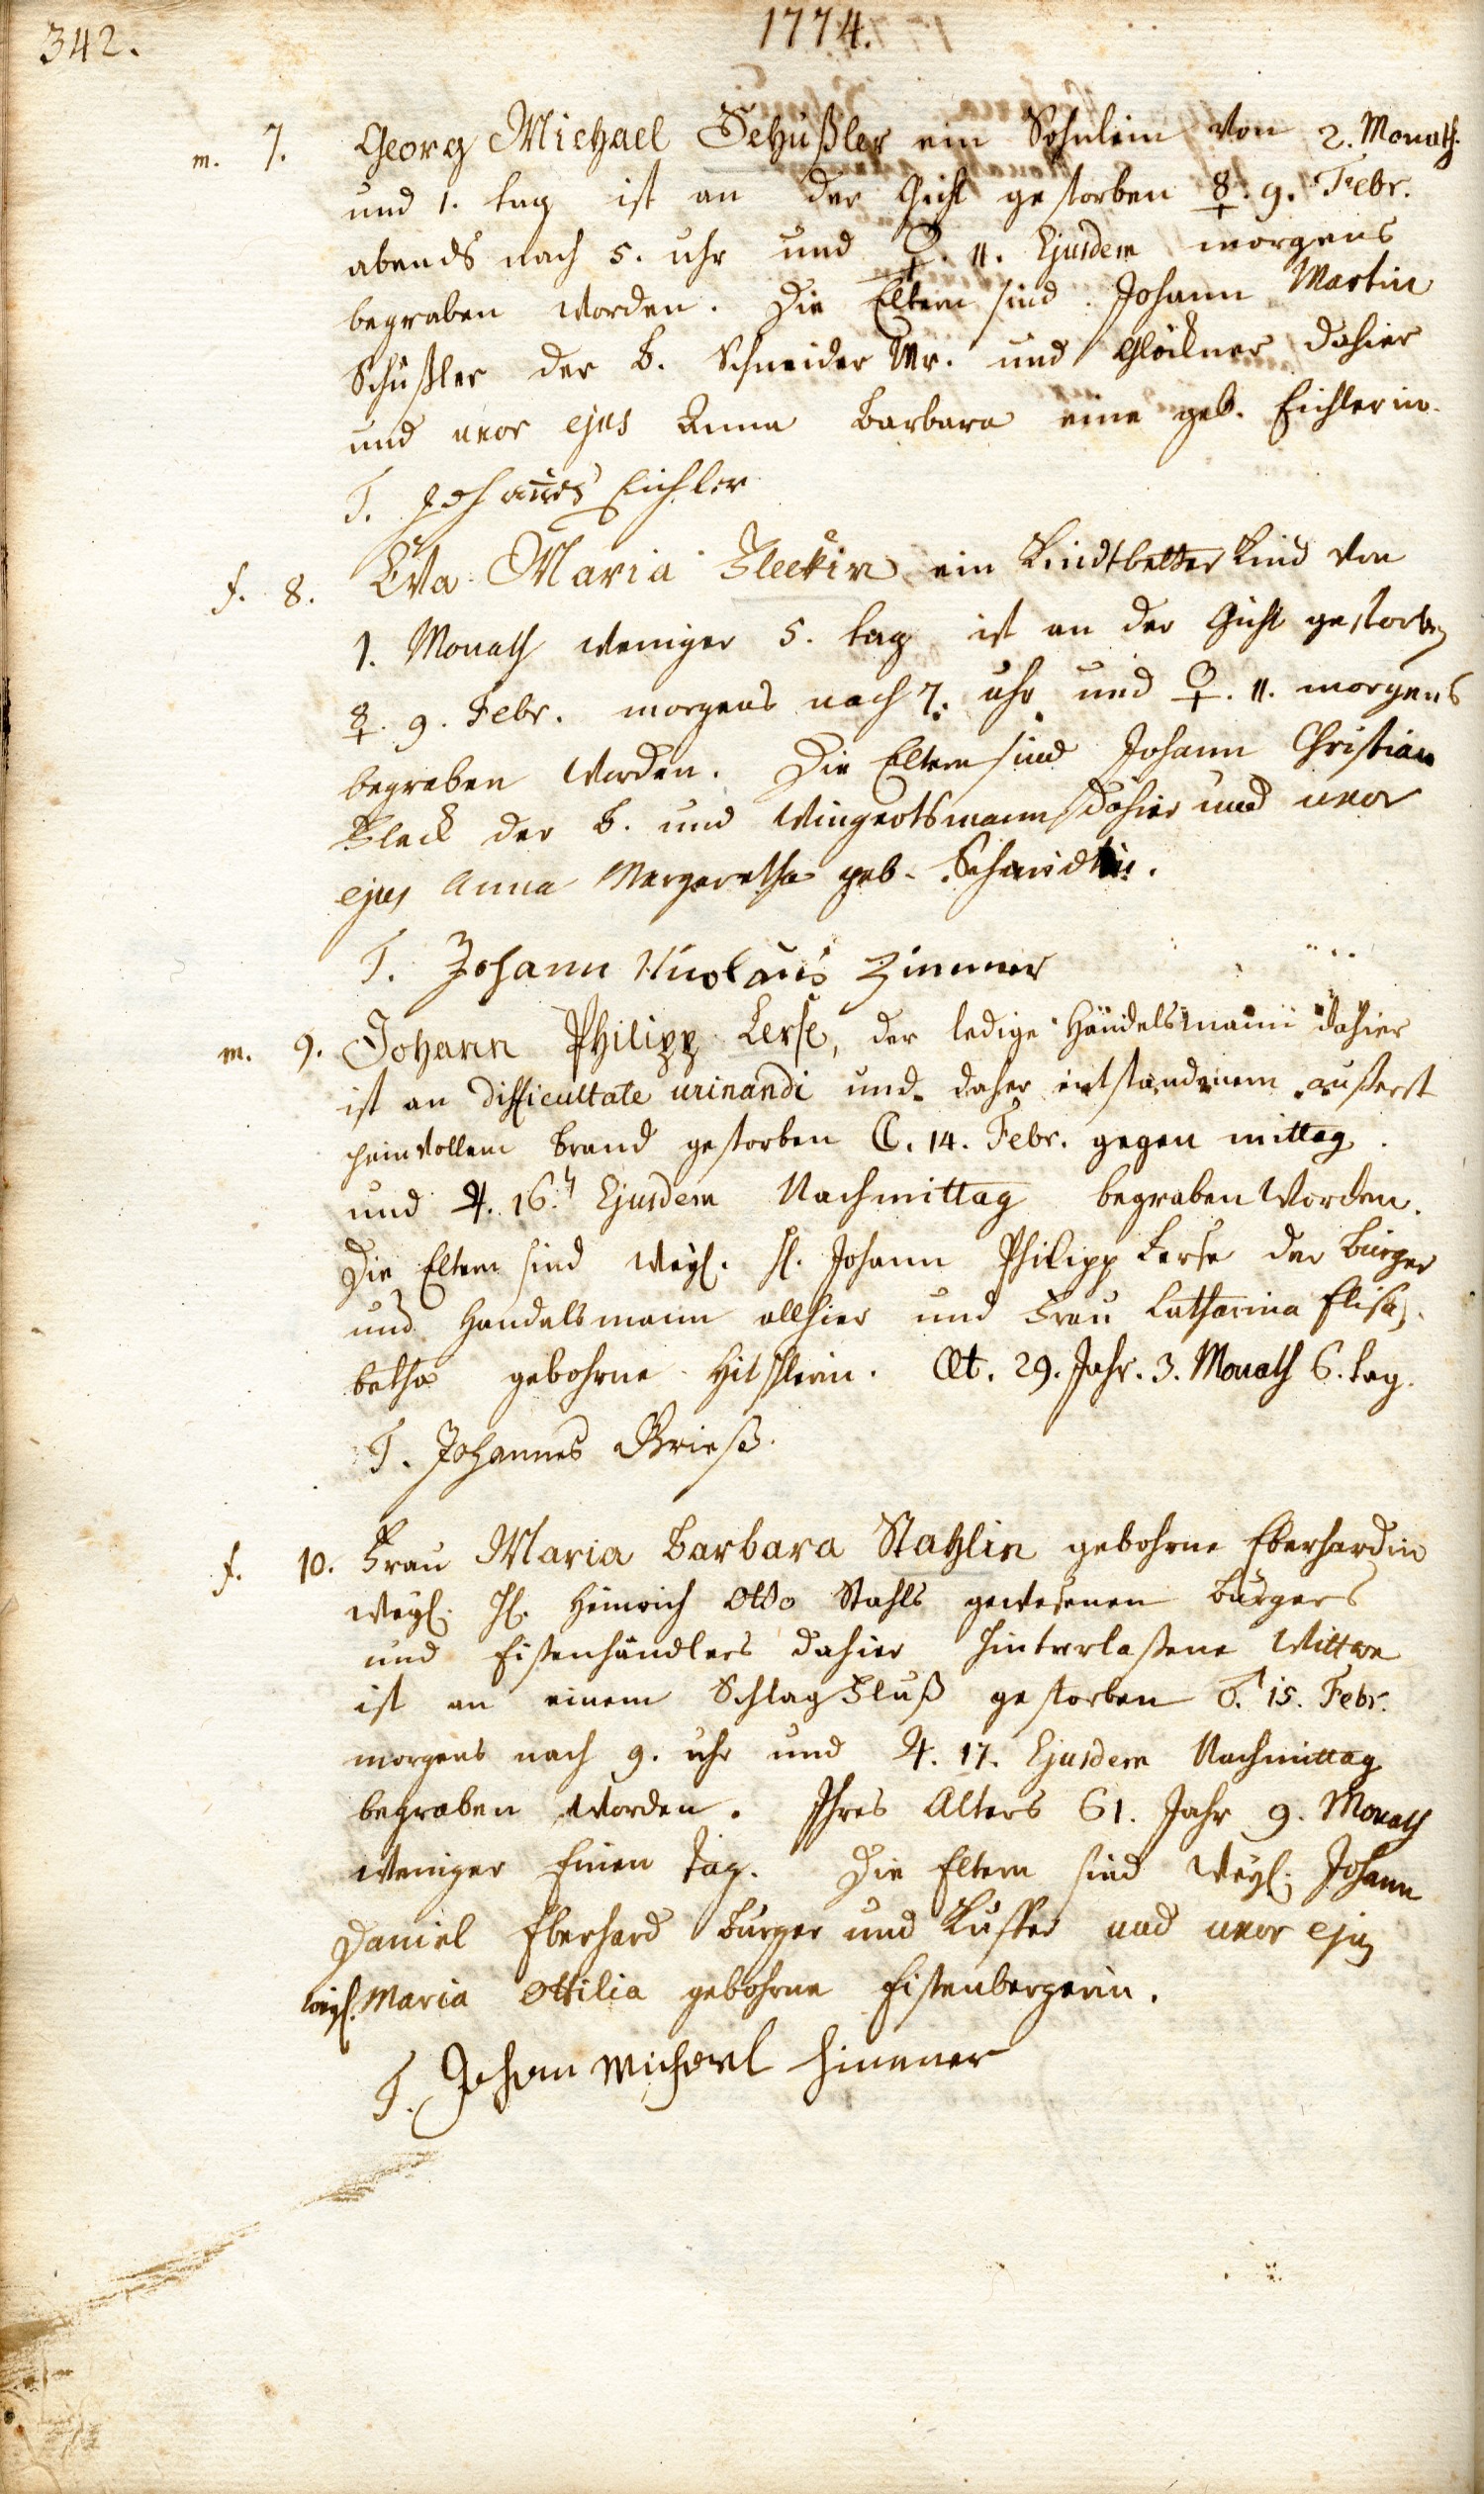 342.
1774.
m. 7. Georg Michael Schußler ein Söhnlein von 2. Monath
und 1. tag ist an der Gicht gestorben ☿. 9. Febr.
abends nach 5. uhr und ♀. 11. Ejusdem morgens
begraben worden. Die Eltern sind Johann Martin
Schußler der B. Schneider Mr. und Glöckner dahier
und uxor ejus Anna Barbara eine geb. Eichlerin.
T. Johannes Eichler
f. 8. Eva Maria Fleckin ein Kindtbetter Kind von
1. Monath weniger 5. tag ist an der Gicht gestorben
☿. 9. Febr. morgens nach 7. uhr und ♀. 11. morgens
begraben worden. Die Eltern sind Johann Christian
Fleck der B. und Wingertsmann dahier und uxor
ejus Anna Margaretha geb. Schmidtin.
T. Johann Nicolaus Zimmer
m. 9. Johann Philipp Lerse, der ledige Handelsmann dahier
ist an difficultate urinandi und daher entstandenem äußerst
peinvollem Brand gestorben ☾. 14. Febr. gegen mittag
und ☿. 16. Ejusdem Nachmittag begraben worden.
Die Eltern sind weyl. H. Johann Philipp Lerse der Bürger
und Handelsmann allhier und Frau Catharina Elisa,
betha gebohrne Hitschlerin. Æt. 29. Jahr. 3. Monath 6. tag.
T. Johannes Grieß.
f. 10. Frau Maria Barbara Stahlin gebohrne Eberhardin
weyl. H. Heinrich Otto Stahls gewesenen Bürgers
und Eisenhändlers dahier hinterlaßene Wittwe
ist an einem Schlag Fluß gestorben ♂. 15. Febr.
morgens nach 9. uhr und ♃. 17. Ejusdem Nachmittag
begraben worden. Ihres Alters 61. Jahr 9. Monath
weniger Einen tag. Die Eltern sind weyl. Johann
Daniel Eberhard Burger und Küffer und uxor ejus
weyl. Maria Ottilia gebohrne Eisenbergerin.
T. Johan Michael